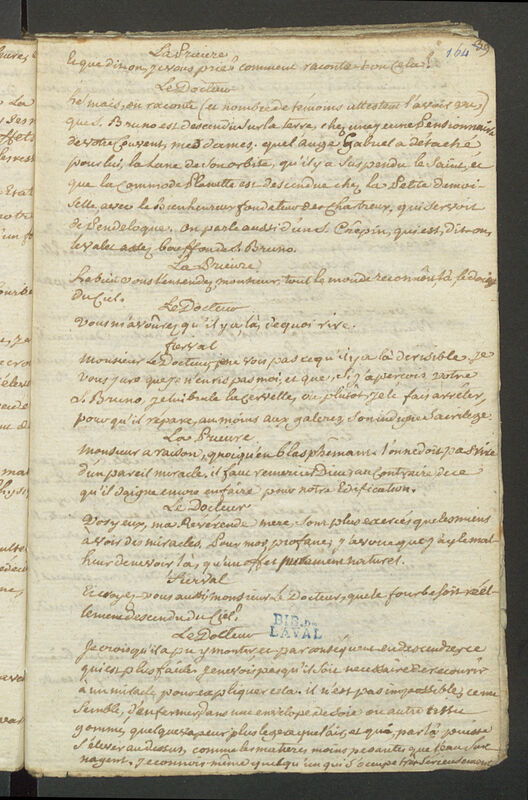 164 59
La Prieure
Et que dit-on, je vous prie? comment raconte-t-on cela?
Le Docteur
hé mais, on raconte (et nombre de témoins attestent l'avoir vu)
que S. Bruno est descendu sur la terre, chez une jeune Pensionnaire
de votre Couvent, mesdames, que l'ange Gabriel a détaché
pour lui, la Lune de son orbite, qu'il y a suspendu le Saint, et
que la Commode Planette est descendue chez la Petite demoi-
selle avec le Bienheureux fondateur des Chartreux, qui servoit
de Pendeloque. on parle aussi d'un S. Crêpin, qui est, dit-on,
le valet assez bouffon de S. Bruno.
La Prieure
hé bien vous l'entendez, monsieur, tout le monde reconnoît là le doigt
du Ciel.
Le Docteur
Vous m'avoûrez qu'il y a là, de quoi rire.
fierval
Monsieur Le Docteur, je ne vois pas ce qu'il y a là de risible. Je
vous jure que je n'en ris pas moi, et que, si j'aperçois votre
S. Bruno, je lui brule la cervelle, ou plutôt je le fais arrêter,
pour qu'il répare, au moins aux galeres, son indigne Sacrilege.
La Prieure
Monsieur a raison, quoiqu'en blasphemant. l'on ne doit pas rire
d'un pareil miracle. il faut remercier Dieu au Contraire de ce
qu'il daigne encore en faire pour notre Edification.
Le Docteur
Vos yeux, ma Révérende mere, sont plus exercés que les miens
a voir des miracles. Pour moi, profane, j'avoue que j'ay le mal-
heur de ne voir là, qu'un effet purement naturel.
Fierval
Et croyez-vous aussi monsieur Le Docteur, que le fourbe soit réel-
lement descendu du Ciel?
Le Docteur
BIB. DE
LAVAL
Je crois qu'il a pu y monter, et par consequent en descendre, ce
qui est plus facile. Je ne vois pas qu'il soit necessaire de recourir
à un miracle pour expliquer cela. il n'est pas impossible, ce me
semble, d'enfermer dans une envelope de Soie ou autre tissu
gommé, quelque vapeur plus legere que l'air, et qui, par là puisse
s'élever au dessus, comme les matieres moins pesantes que l'eau sur-
nagent. Je connois même quelqu'un qui s'occupe très serieusement